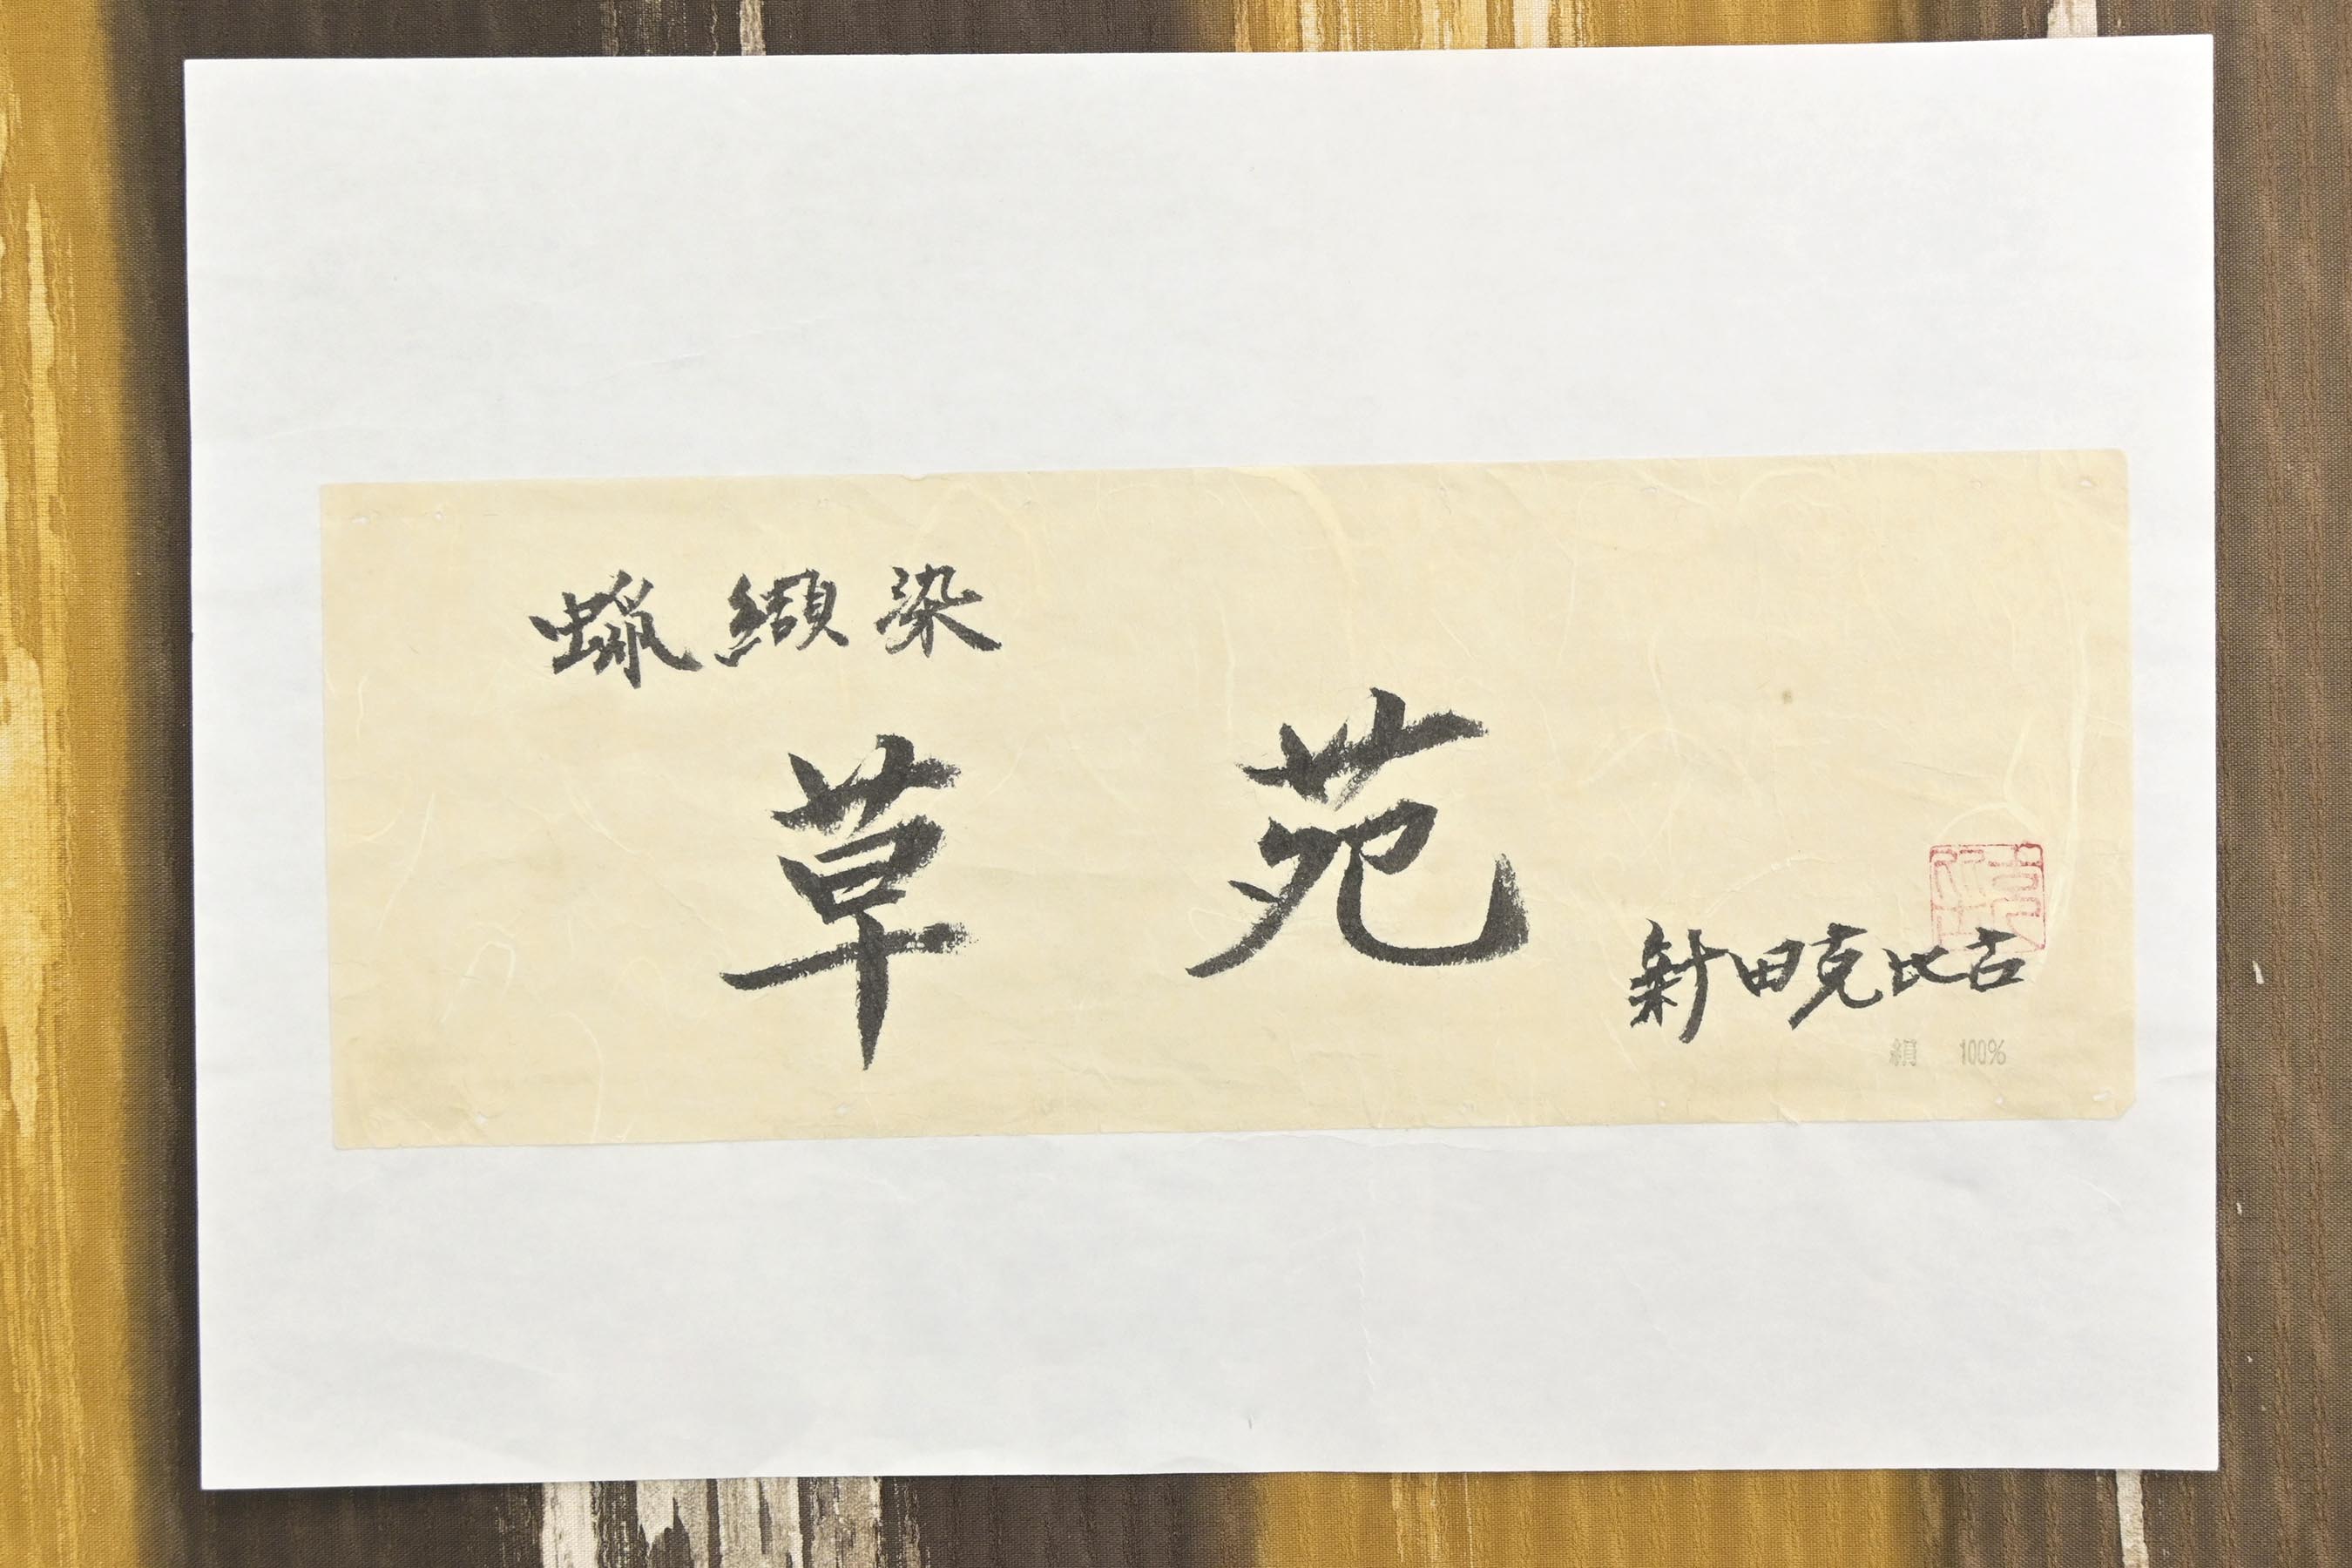 蝋纈染
草苑
新田克比古
絹 100%